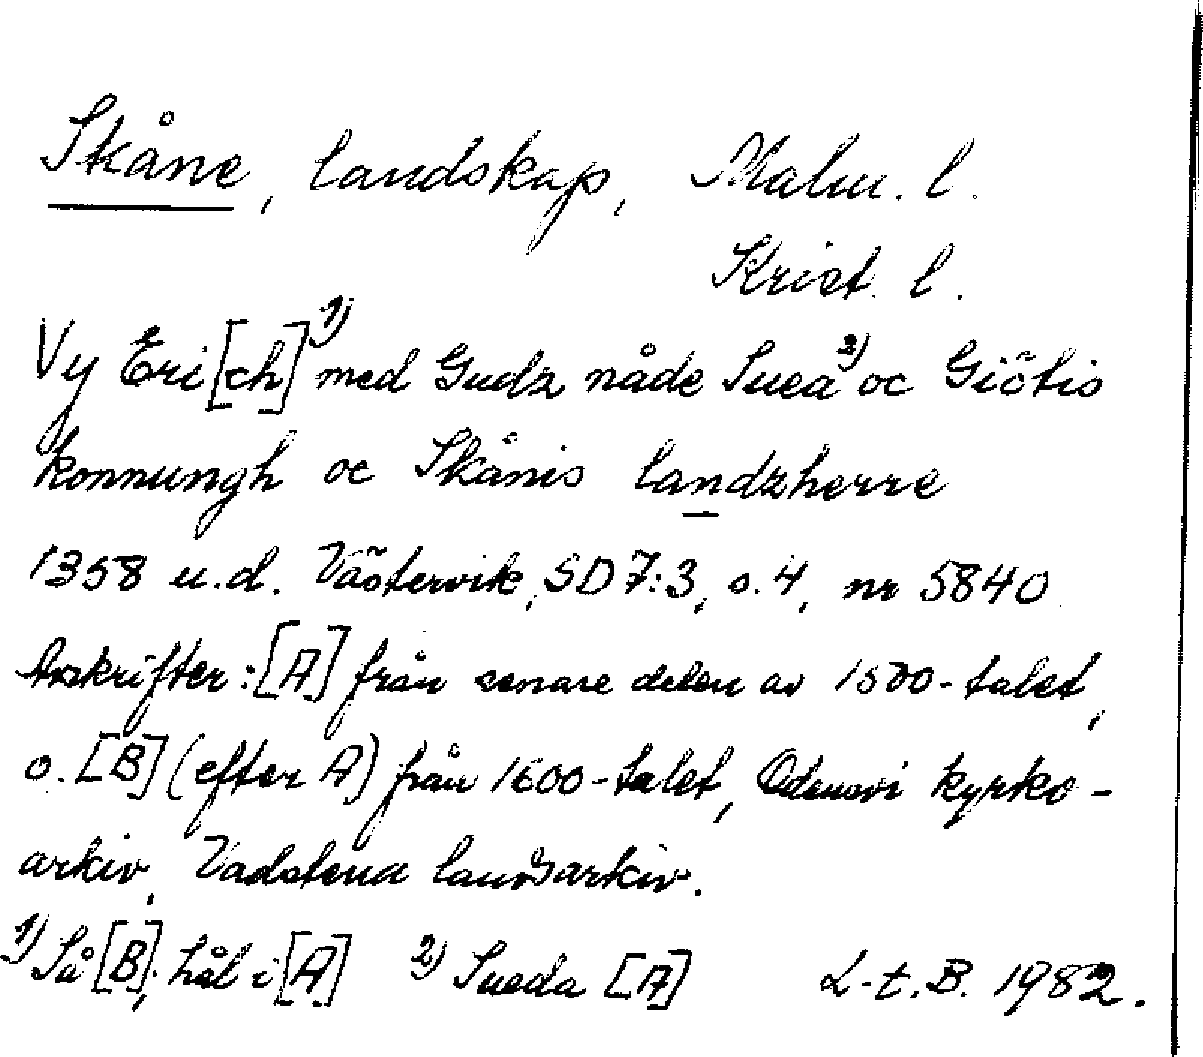 Skåne, landskap, Malm. l.
Krist. l.
Vy Eri[ch]¹⁾ med Gudz nåde Suea²⁾ oc Giötis
konnungh oc Skånis landzherre
1358 u.d. Västervik, SD 7:3, s. 4, nr 5840
Avskrifter: [A] från senare delen av 1500-talet,
o. [B] (efter A) från 1600-talet, Odensvi kyrko-
arkiv, Vadstena landsarkiv.
¹⁾ Så [B]; hål i [A] ²⁾ Sueda [A] L-t. B. 1982.